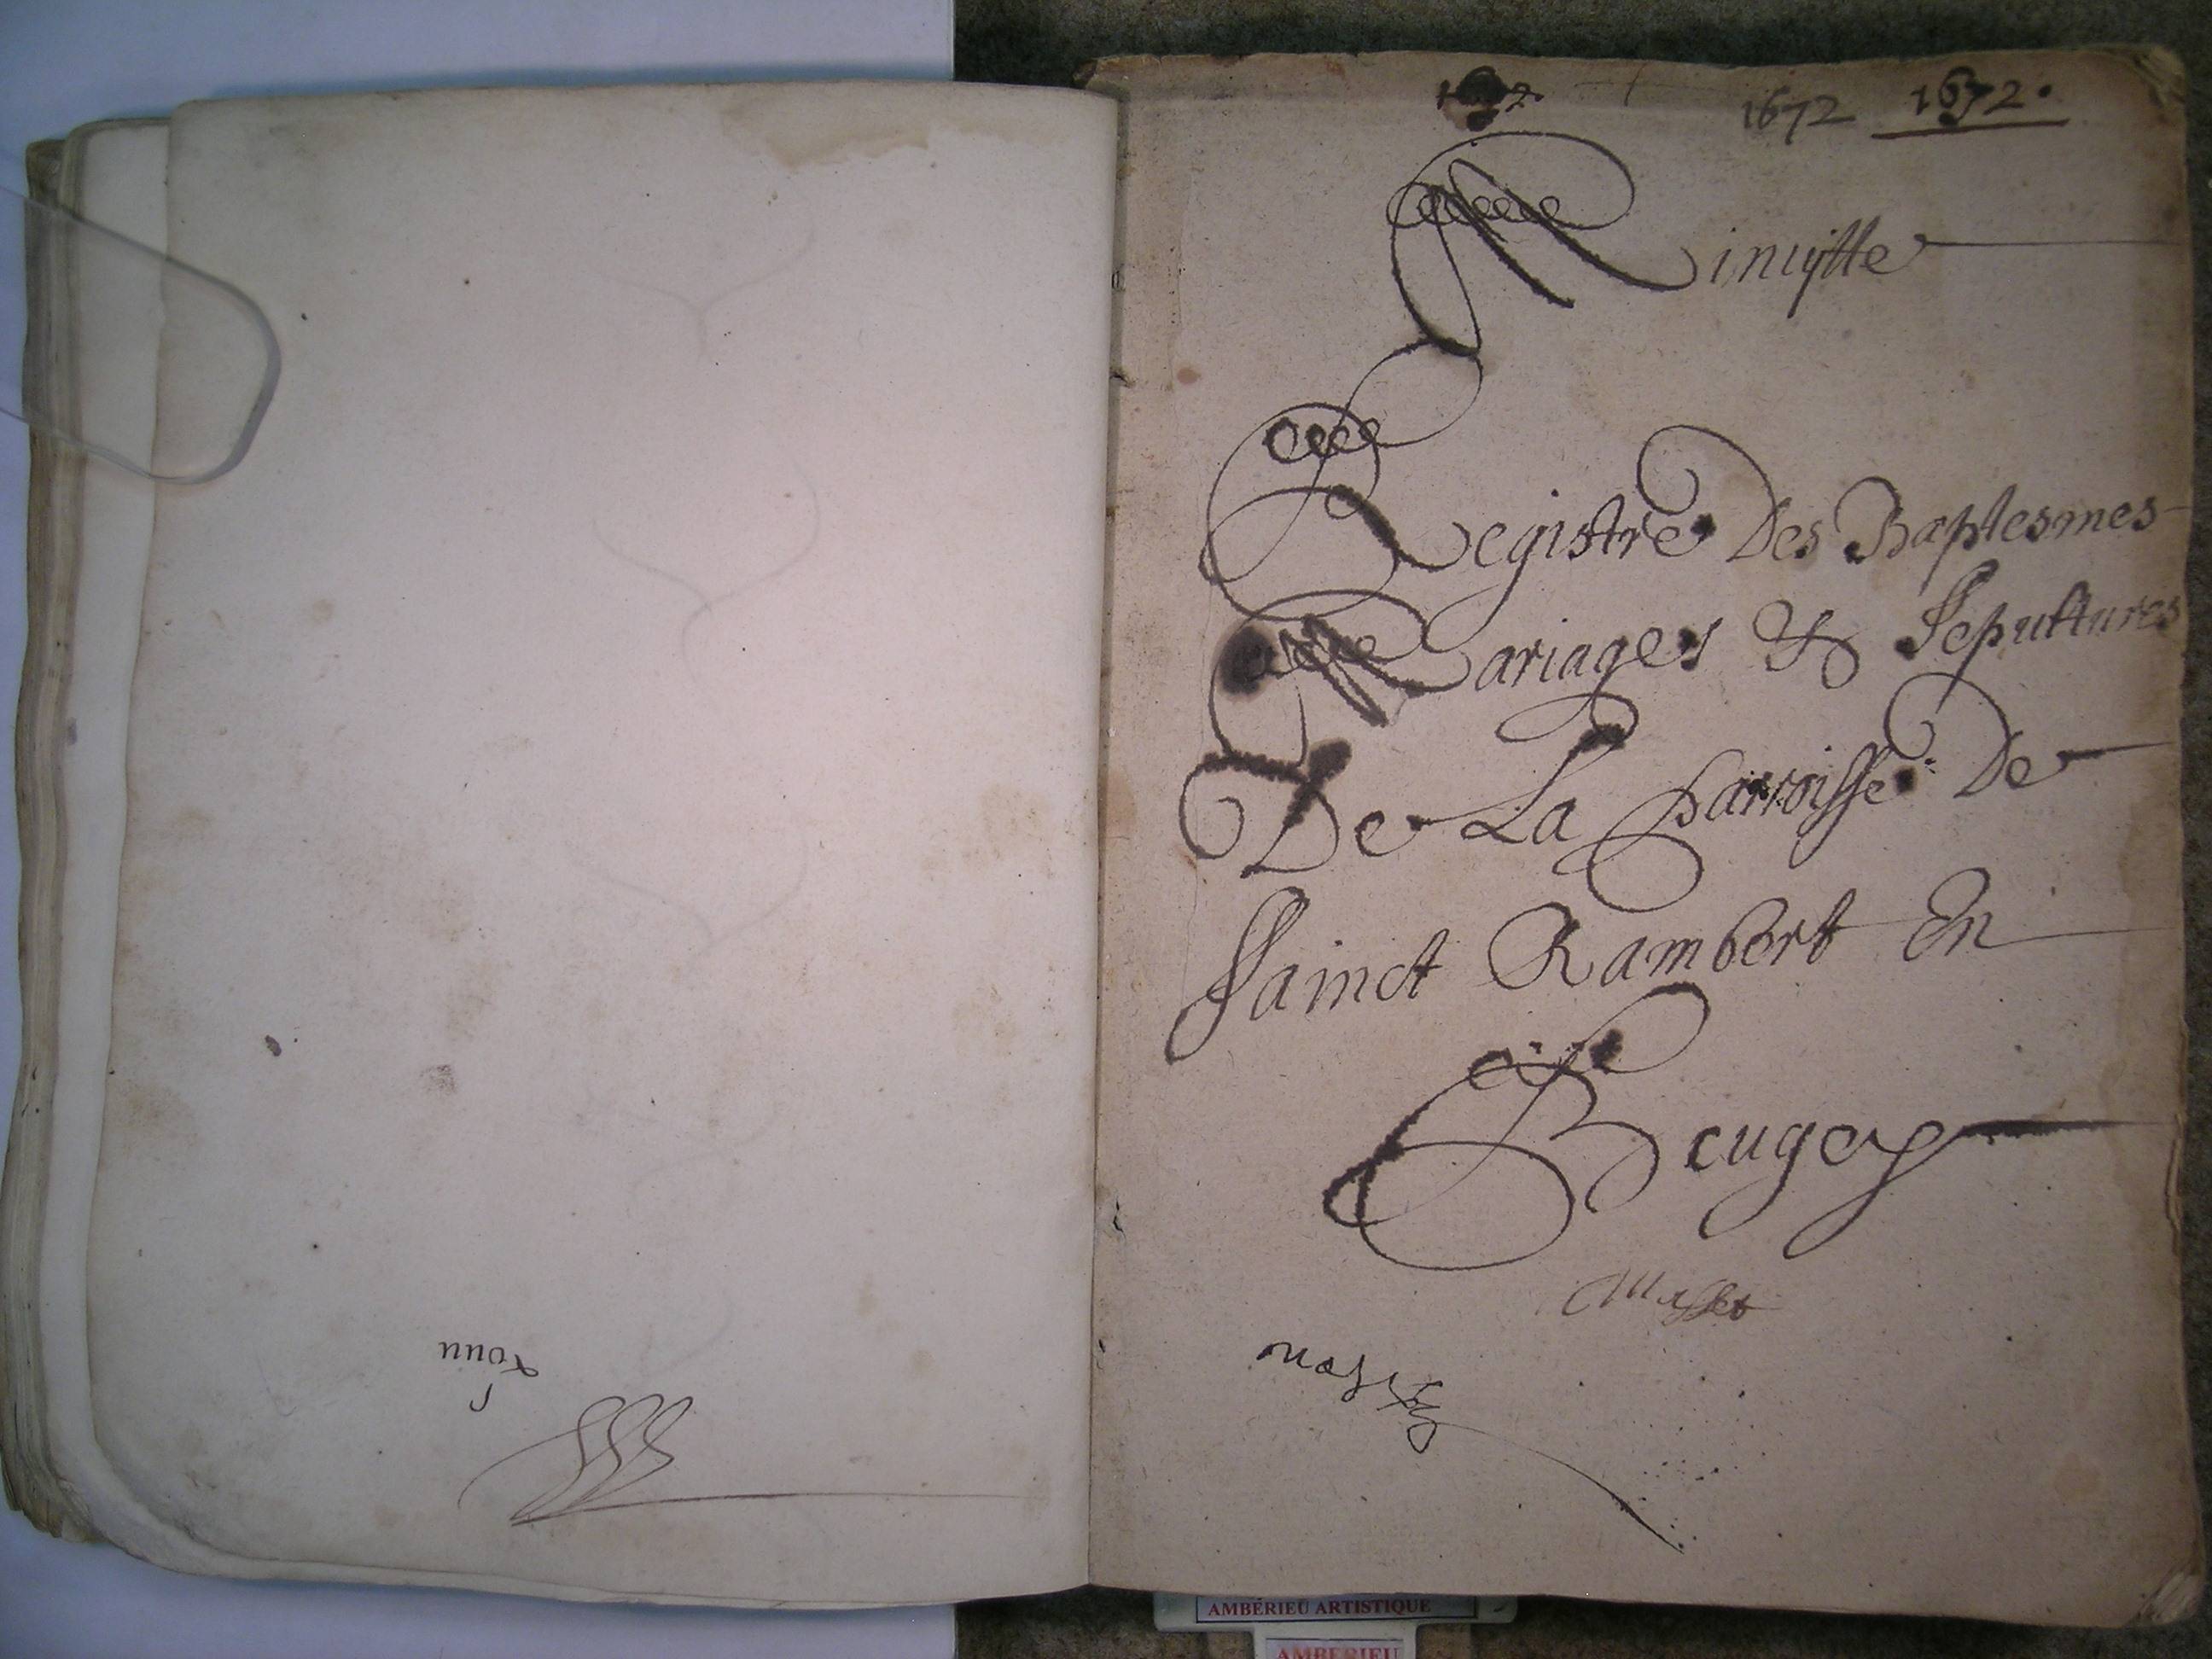 1672 1672.
Minuĳtte
Registre Des Baptesmes
Mariages & Sepultures
De La parroisse De
Sainct Rambert En
Beugey
AMBÉRIEU ARTISTIQUE
AMBERIEU